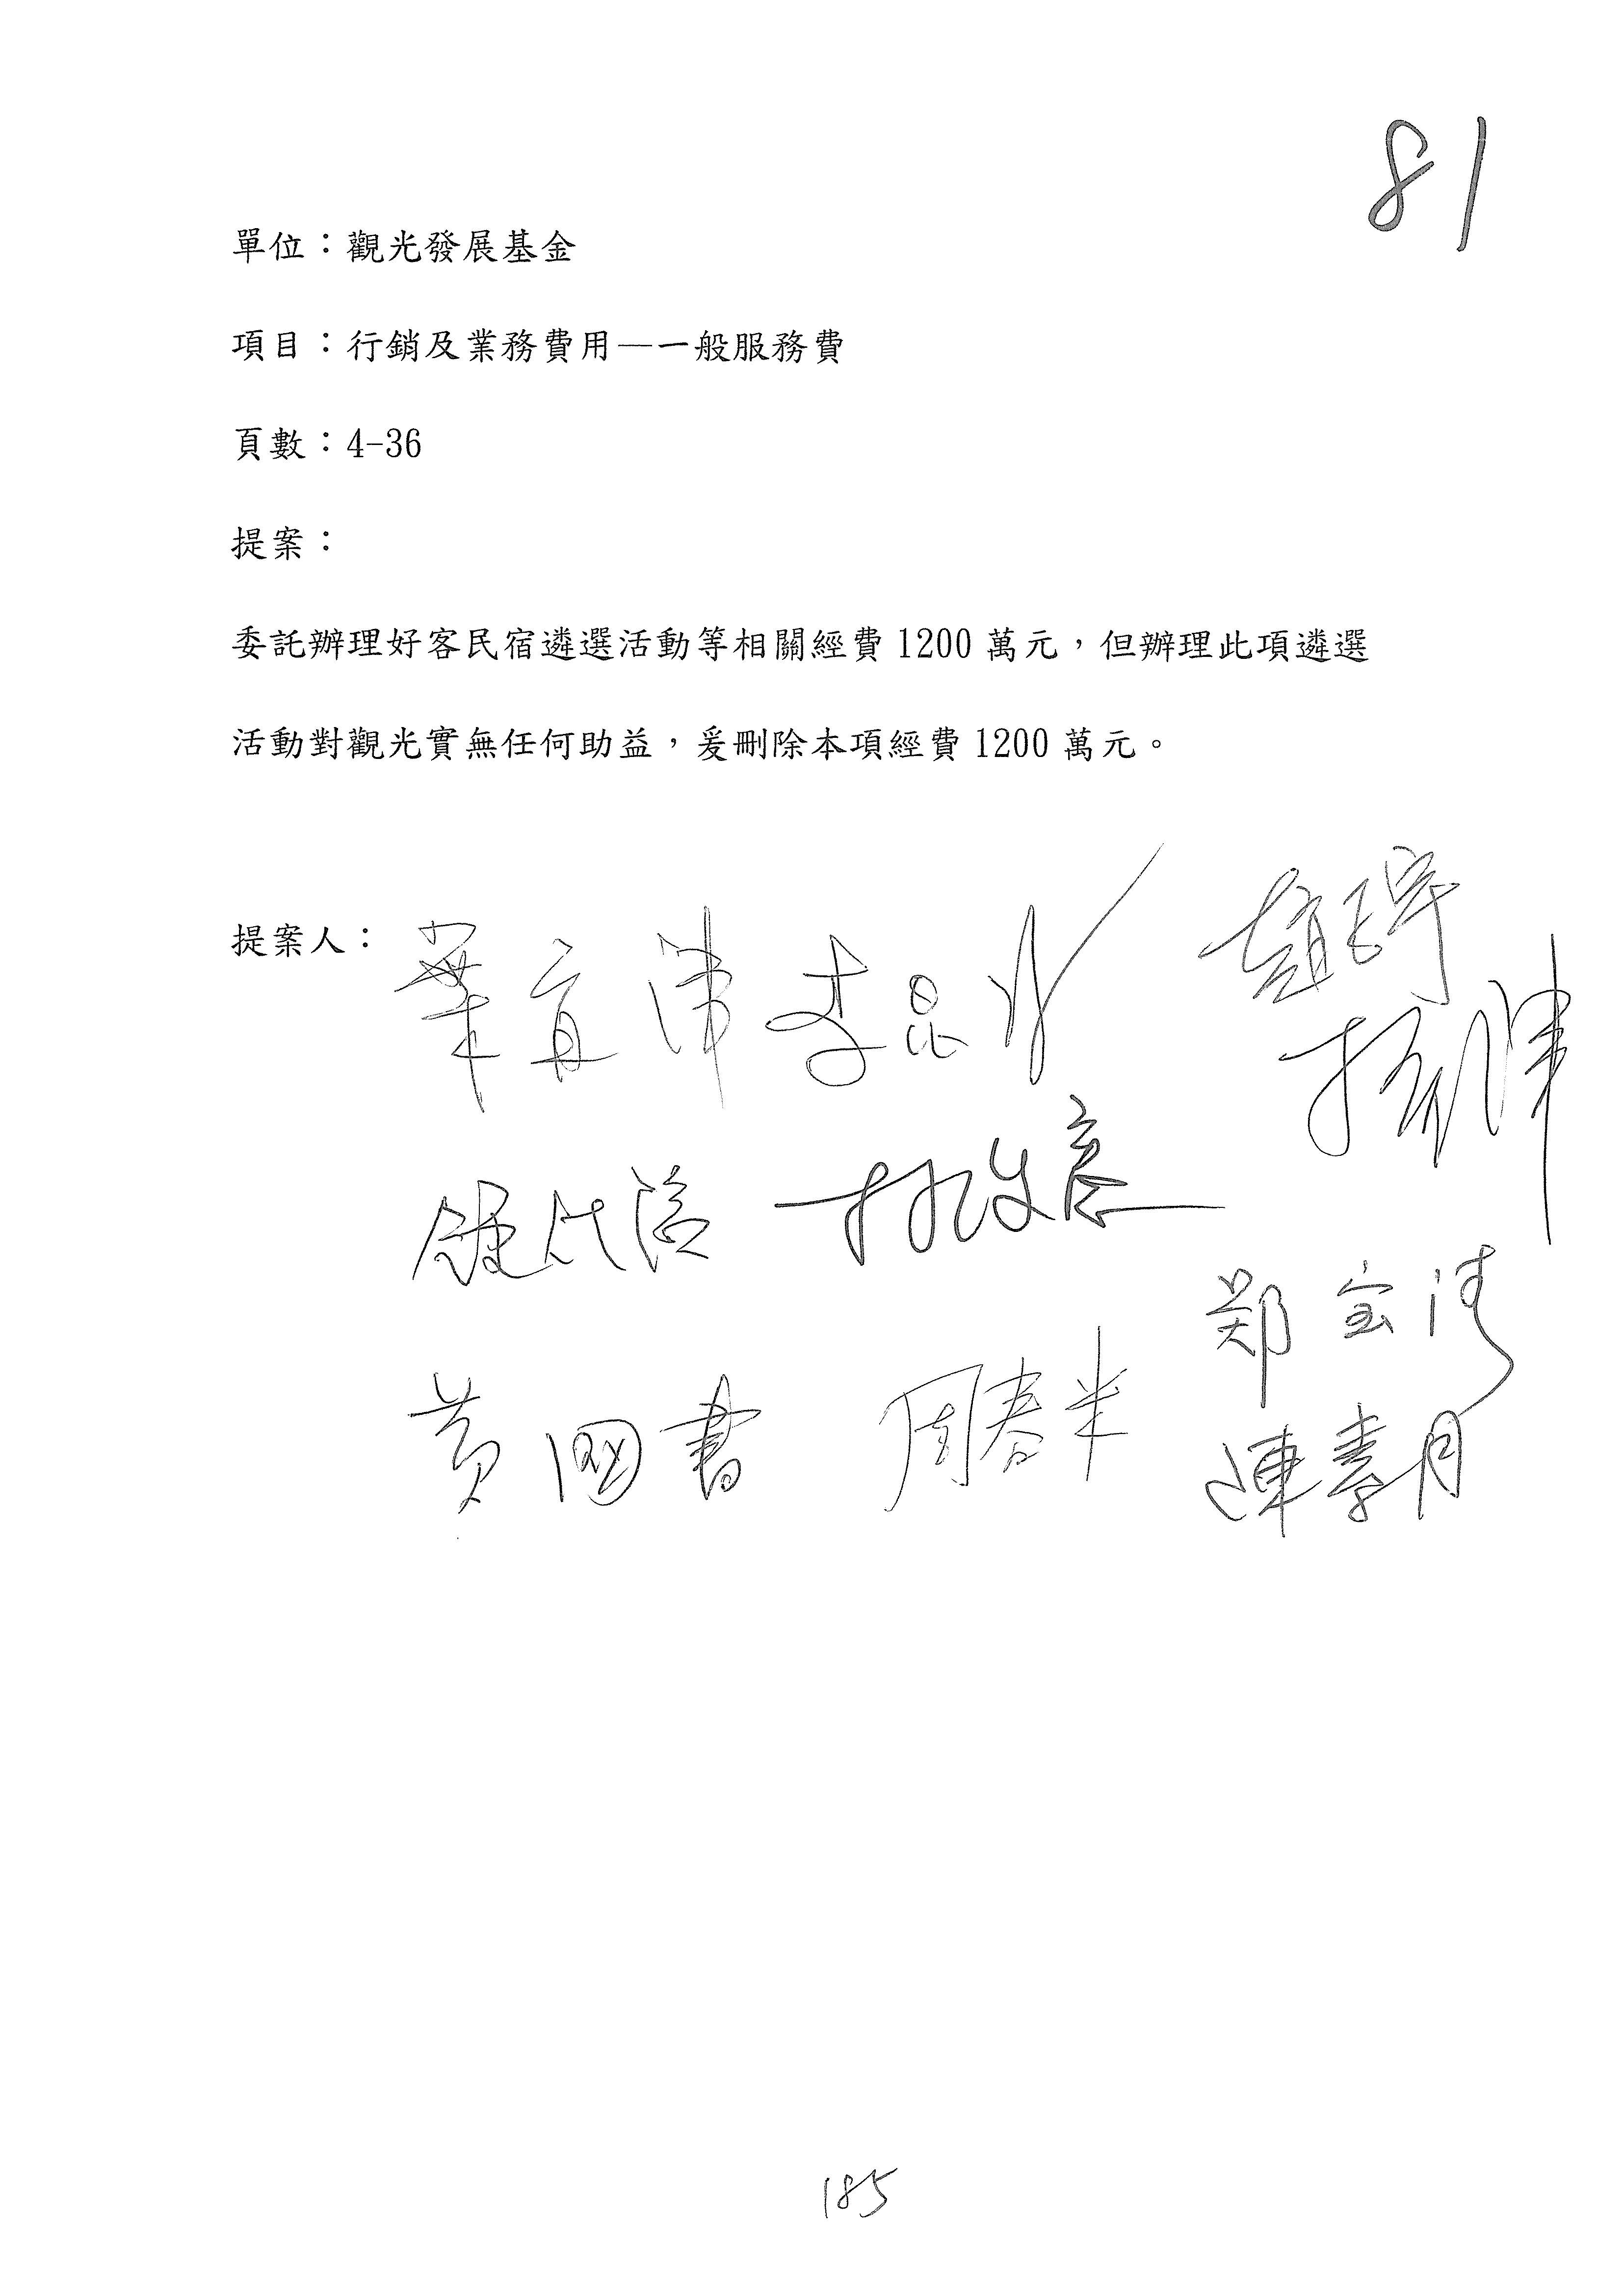 81
單位：觀光發展基金
項目：行銷及業務費用—一般服務費
頁數：4-36
提案：
委託辦理好客民宿遴選活動等相關經費 1200 萬元，但辦理此項遴選
活動對觀光實無任何助益，爰刪除本項經費 1200 萬元。
提案人：
葉宜津 李昆澤
趙正宇
林俊憲
鄭宝清
黃國書 周春米
陳素月
185